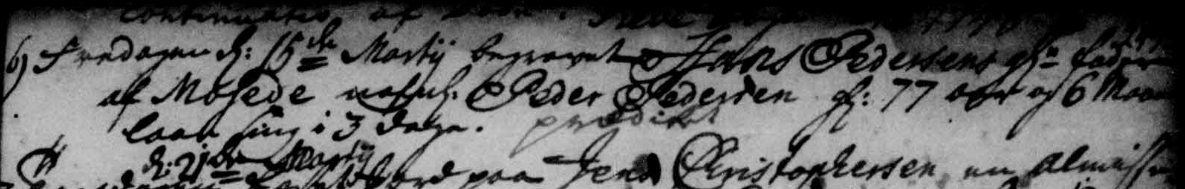 Continuatio af
6) Fredagen d: 15de Martij begravet Hans Pedersens gl: fader
af Mosede nafnl: Peder Pedersen gl: 77 aar og 6 Maan
laae siug i 3 dage. prædiket
d: 21de Martij
paa Jens Christophersen en Almisse